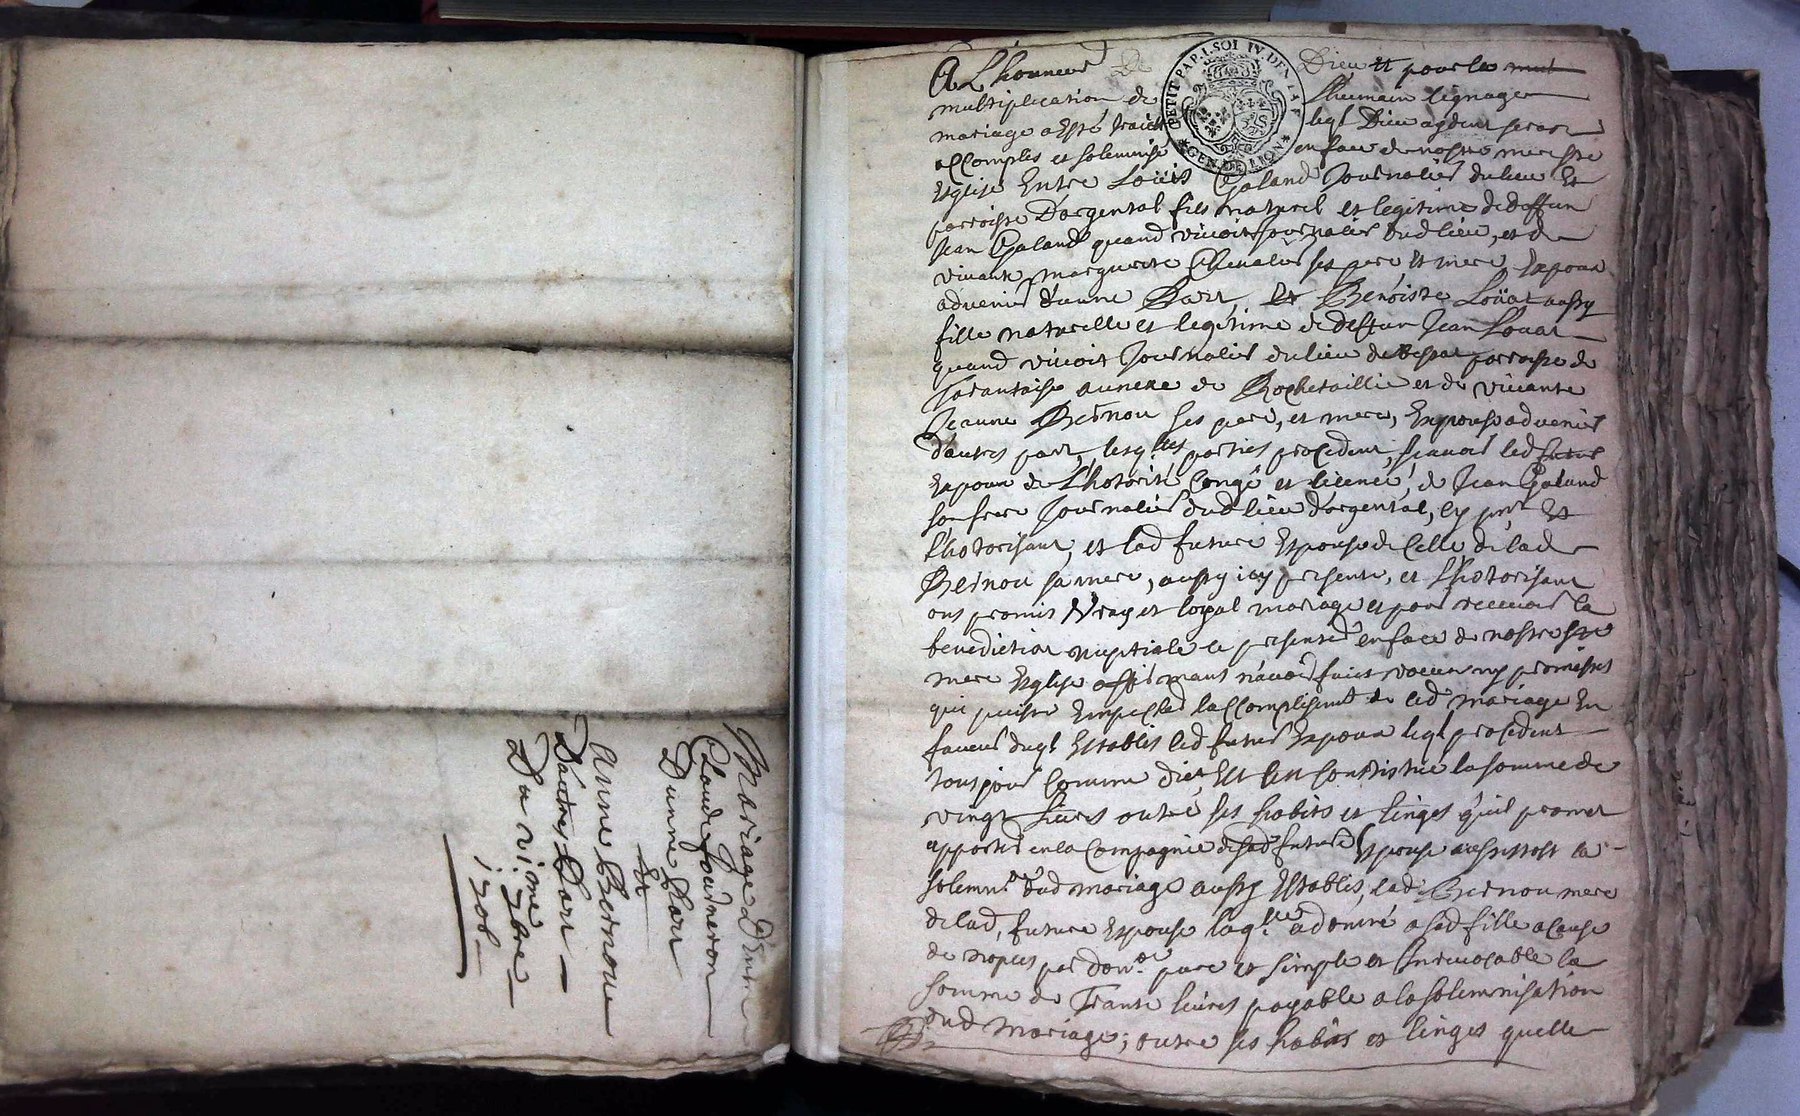 Mariage D'Entre
Claude fourneron
D'unne Part
Et
Anne Bernoue
D'autres Part
Du vi.me xbre
1706
A L'honneur De Dieu et pour la
multiplication de L'humain lignage
mariage a esté traicté leql Dieu aydent sera
accomplis et solemnise en face de nostre mere ste
Esglise Entre Loüis Galand Journalier du lieu Et
parroisse D'argental fils naturel et legitime de deffun
Jean Galand quand vivoit Journalier dud lieu, et de
vivante marguerite Chevalier ses pere et mere Expoux
advenir d'unne Part, Et Benoiste Loüat aussy
fille naturelle et legitime de deffun Jean Louat
quand vivoit Journalier du lieu de Bessat parroisse de
Tarantaise annexe de Rochetaillie et de vivante
Jeanne Bernou ses pere, et mere, Expouse advenir
d'autres part, lesq.lles parties procedent, scavoir led futur
Expoux de L'hotorité Congé et licence, de Jean Galand
son frere Journalier dud lieu d'argental, Cy pnt Et
L'hotorisant, et lad future Espouse de Celle de lad
Bernou sa mere, aussy icy presente, et L'hotorisant
ont promis Vray et loyal mariage et pour recevoir la
benediction nuptiale se presenter en face de nostre ste
mere Esglise affirmant n'avoir faict voeux ny promesses
qui puisse Empecher laccomplisement de led mariage En
faveur duql Establis led futur Expoux leql procedent
tousjour Comme dict, Est sest Constitué la somme de
vingt livres outre ses habits et linges qu'il promet
apporter en la Compagnie de sad future Espouse aussitost la
solemn.on dud mariage aussy Establis, lad Bernou mere
de lad, future Espouse laq.lle a donné a sad fille a Cause
de nopces par don.on pure et simple et Inrevocable la
somme de Trante livres payable a la solemnisation
dud mariage; outre ses habits et linges quelle
PETIT PAP. 1. SOL IV. DEN. LA F.
GEN. DE LION